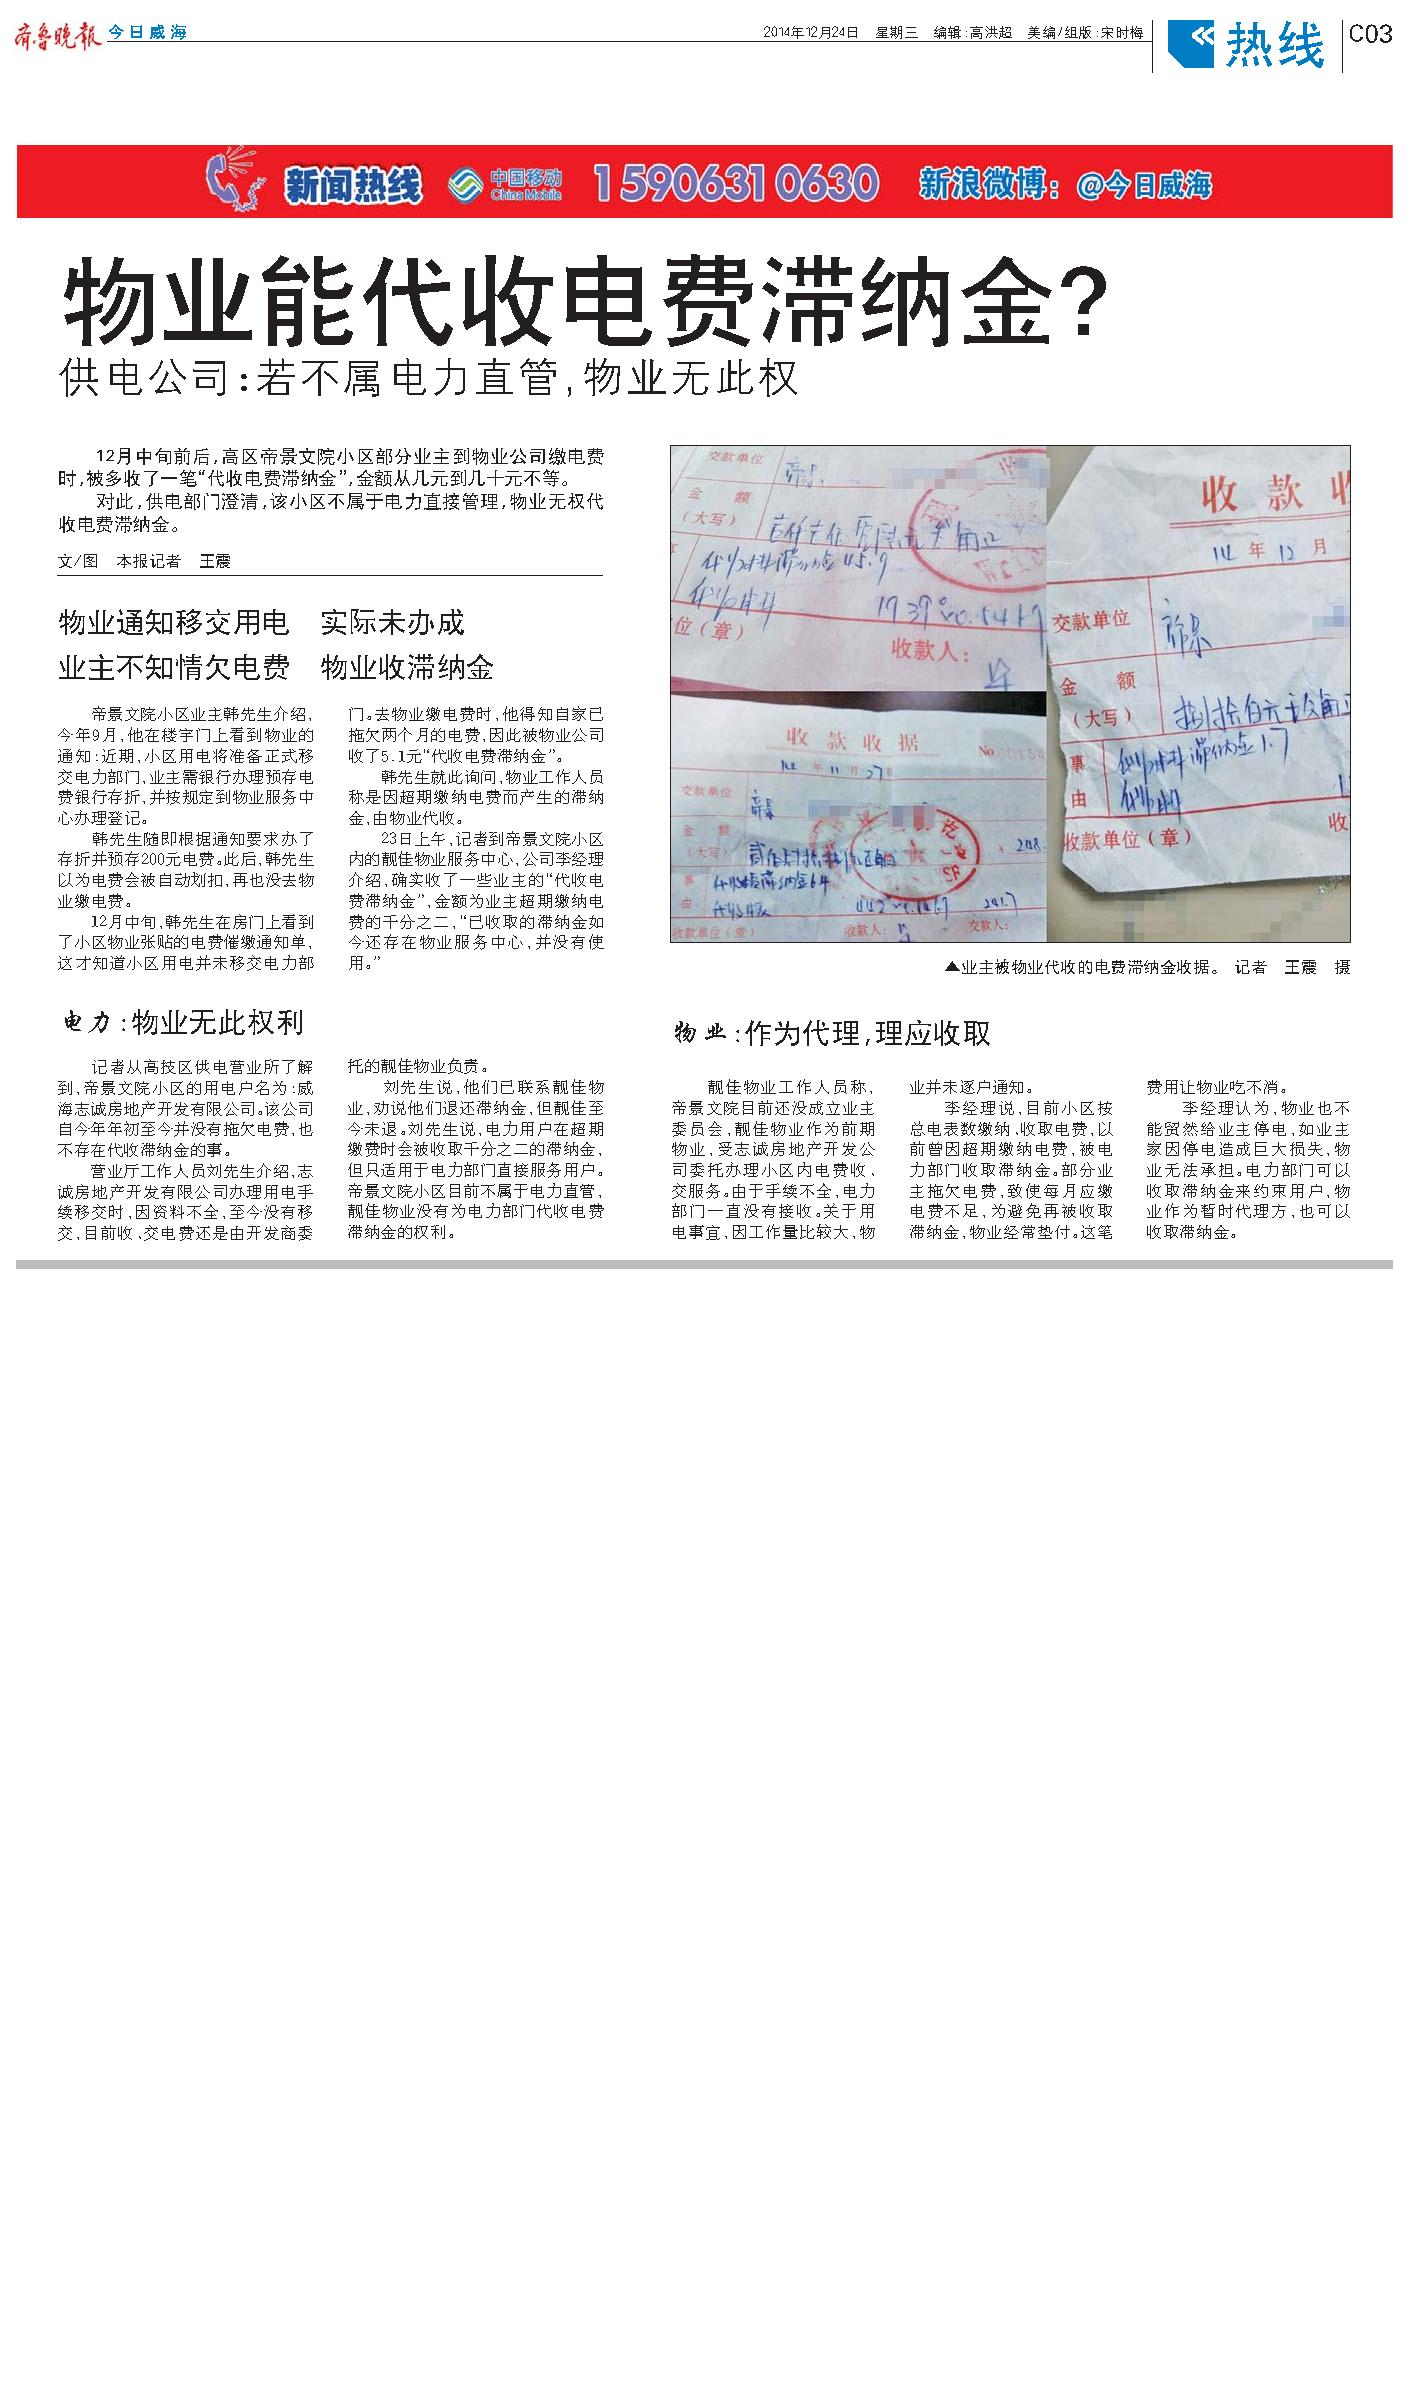 齐鲁晚报 今日威海
2014年12月24日 星期三 编辑：高洪超 美编/组版：宋时梅
热线
C03
新闻热线 中国移动 China Mobile 15906310630 新浪微博：@今日威海
物业能代收电费滞纳金？
供电公司：若不属电力直管，物业无此权
12月中旬前后，高区帝景文院小区部分业主到物业公司缴电费
时，被多收了一笔“代收电费滞纳金”，金额从几元到几十元不等。
对此，供电部门澄清，该小区不属于电力直接管理，物业无权代
收电费滞纳金。
文/图 本报记者 王震
物业通知移交用电 实际未办成
业主不知情欠电费 物业收滞纳金
帝景文院小区业主韩先生介绍，
今年9月，他在楼宇门上看到物业的
通知：近期，小区用电将准备正式移
交电力部门，业主需银行办理预存电
费银行存折，并按规定到物业服务中
心办理登记。
韩先生随即根据通知要求办了
存折并预存200元电费。此后，韩先生
以为电费会被自动划扣，再也没去物
业缴电费。
12月中旬，韩先生在房门上看到
了小区物业张贴的电费催缴通知单，
这才知道小区用电并未移交电力部
门。去物业缴电费时，他得知自家已
拖欠两个月的电费，因此被物业公司
收了5.1元“代收电费滞纳金”。
韩先生就此询问，物业工作人员
称是因超期缴纳电费而产生的滞纳
金，由物业代收。
23日上午，记者到帝景文院小区
内的靓佳物业服务中心、公司李经理
介绍，确实收了一些业主的“代收电
费滞纳金”，金额为业主超期缴纳电
费的千分之二，“已收取的滞纳金如
今还存在物业服务中心，并没有使
用。”
交款单位
金 额
（大写）
代收电费滞纳金45.9
位（章）
收款人：
收款收据
14年11月27日
交款单位
金 额
（大写）
事
由
收款单位（章）
收款人：
交款人：
收款收
14年12月
交款单位
金 额
（大写）
事
由
收款单位（章）
收
▲业主被物业代收的电费滞纳金收据。 记者 王震 摄
电力：物业无此权利
记者从高技区供电营业所了解
到，帝景文院小区的用电户名为：威
海志诚房地产开发有限公司。该公司
自今年年初至今并没有拖欠电费，也
不存在代收滞纳金的事。
营业厅工作人员刘先生介绍，志
诚房地产开发有限公司办理用电手
续移交时，因资料不全，至今没有移
交，目前收、交电费还是由开发商委
托的靓佳物业负责。
刘先生说，他们已联系靓佳物
业，劝说他们退还滞纳金，但靓佳至
今未退。刘先生说，电力用户在超期
缴费时会被收取千分之二的滞纳金，
但只适用于电力部门直接服务用户。
帝景文院小区目前不属于电力直管，
靓佳物业没有为电力部门代收电费
滞纳金的权利。
物业：作为代理，理应收取
靓佳物业工作人员称，
帝景文院目前还没成立业主
委员会，靓佳物业作为前期
物业，受志诚房地产开发公
司委托办理小区内电费收、
交服务。由于手续不全，电力
部门一直没有接收。关于用
电事宜，因工作量比较大，物
业并未逐户通知。
李经理说，目前小区按
总电表数缴纳、收取电费，以
前曾因超期缴纳电费，被电
力部门收取滞纳金。部分业
主拖欠电费，致使每月应缴
电费不足，为避免再被收取
滞纳金，物业经常垫付。这笔
费用让物业吃不消。
李经理认为，物业也不
能贸然给业主停电，如业主
家因停电造成巨大损失，物
业无法承担。电力部门可以
收取滞纳金来约束用户，物
业作为暂时代理方，也可以
收取滞纳金。